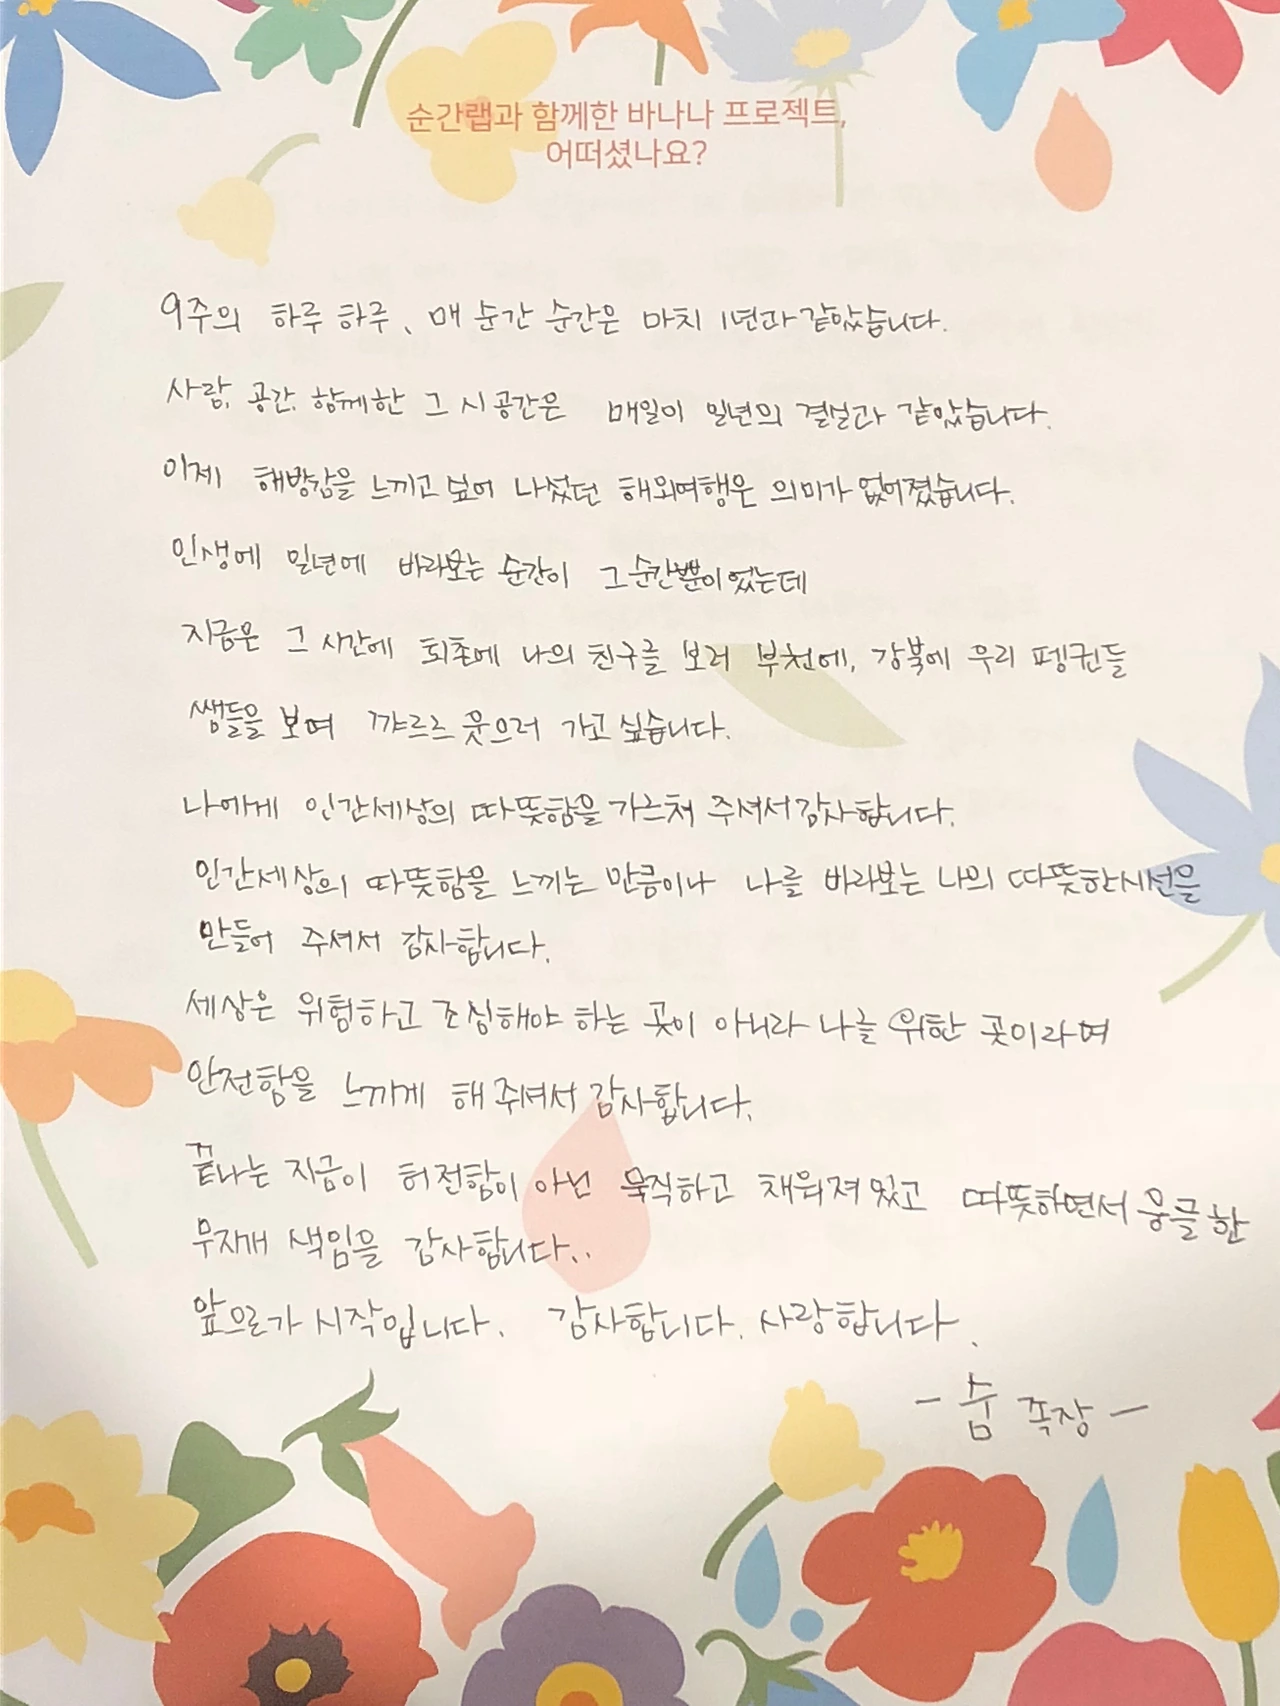 순간랩과 함께한 바나나 프로젝트,
어떠셨나요?
9주의 하루 하루, 매 순간 순간은 마치 1년과 같았습니다.
사람, 공간, 함께한 그 시공간은 매일이 일년의 결실과 같았습니다.
이제 해방감을 느끼고 싶어 나섰던 해외여행은 의미가 없어졌습니다.
인생에 일년에 바라보는 순간이 그 순간뿐이었는데
지금은 그 시간에 퇴촌에 나의 친구를 보러 부천에, 강북에 우리 펭귄들
쌤들을 보며 꺄르르 웃으러 가고 싶습니다.
나에게 인간세상의 따뜻함을 가르쳐 주셔서 감사합니다.
인간세상의 따뜻함을 느끼는 만큼이나 나를 바라보는 나의 따뜻한 시선을
만들어 주셔서 감사합니다.
세상은 위험하고 조심해야 하는 곳이 아니라 나를 위한 곳이라며
안전함을 느끼게 해 주셔서 감사합니다.
끝나는 지금이 허전함이 아닌 묵직하고 채워져 있고 따뜻하면서 뭉클한
무지개 색임을 감사합니다..
앞으로가 시작입니다. 감사합니다. 사랑합니다.
- 숨 족장 -